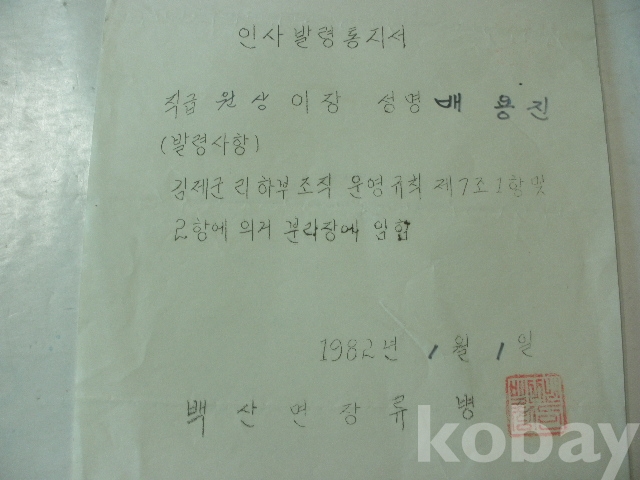 인사발령통지서
직급 원상이장 성명 배용진
(발령사항)
김제군 리하부조직 운영규칙 제7조1항및
2항에 의거 분리장에 임함
1982년 1월 1일
백산면장 류 병
kobay